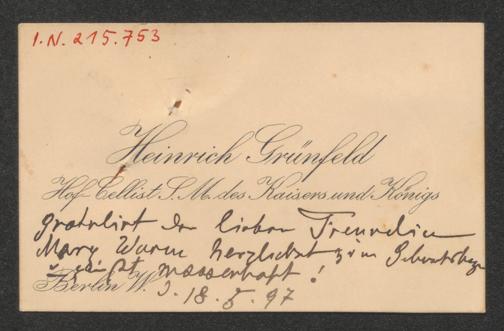 I.N. 215.753
Heinrich Grünfeld
Hof-Cellist S. M. des Kaisers und Königs
gratulirt der lieben Freundin
Mary Wurm herzlichst zum Geburtstage
massenhaft!
Berlin W.
18. 97